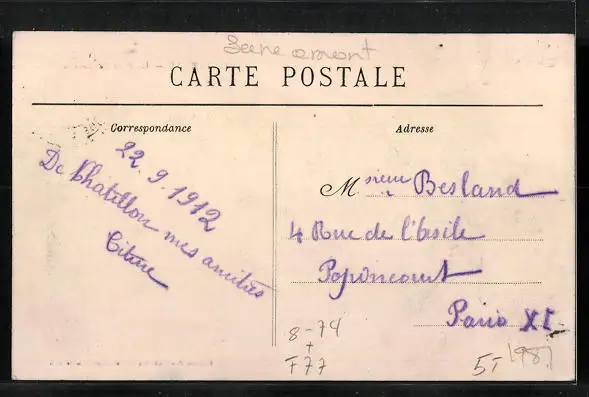 Seine amont
CARTE POSTALE
Correspondance
22.9.1912
De Chatillon mes amitiés
Adresse
Msieur Besland
4 Rue de l'Asile
Popincourt
Paris XI
8-74
+
F77
5T 1981